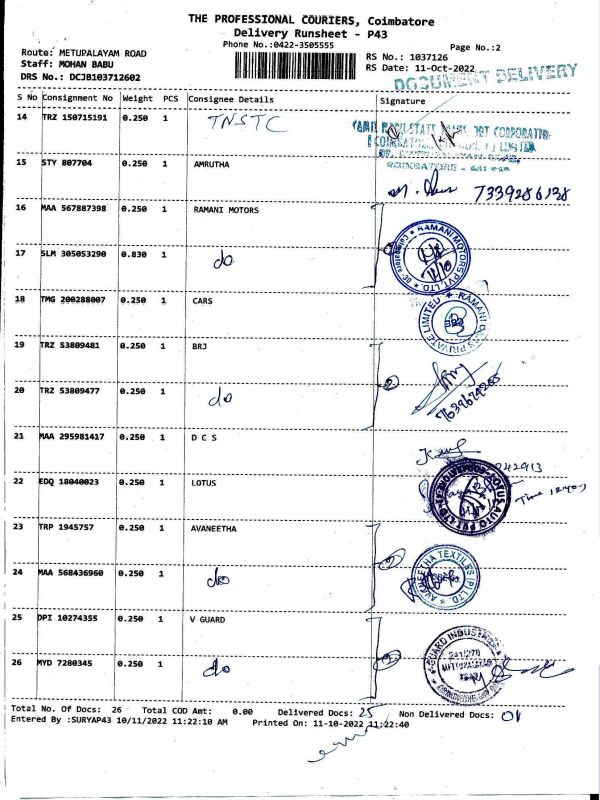 THE PROFESSIONAL COURIERS, Coimbatore
Delivery Runsheet - P43
Phone No.:0422-3505555
Page No.:2
Route: METUPALAYAM ROAD
RS No.: 1037126
Staff: MOHAN BABU
RS Date: 11-Oct-2022
DRS No.: DCJB103712602
DOCUMENT DELIVERY
S No Consignment No Weight PCS Consignee Details Signature
14 TRZ 150715191 0.250 1 TNSTC
15 STY 807704 0.250 1 AMRUTHA
7339286138
16 MAA 567887398 0.250 1 RAMANI MOTORS
17 SLM 305053290 0.830 1 do
RAMANI MOTORS PVT. LTD.
18 TMG 200288007 0.250 1 CARS
RAMANI CARS PRIVATE LIMITED
19 TRZ 53809481 0.250 1 BRJ
20 TRZ 53809477 0.250 1 do
21 MAA 295981417 0.250 1 D C S
22 EDQ 18040023 0.250 1 LOTUS
23 TRP 1945757 0.250 1 AVANEETHA
24 MAA 568436960 0.250 1 do
AVANEETHA TEXTILES (P) LTD.
25 DPI 10274355 0.250 1 V GUARD
26 MYD 7280345 0.250 1 do
Total No. Of Docs: 26 Total COD Amt: 0.00 Delivered Docs: 25 Non Delivered Docs: 01
Entered By :SURYAP43 10/11/2022 11:22:10 AM Printed On: 11-10-2022 11:22:40